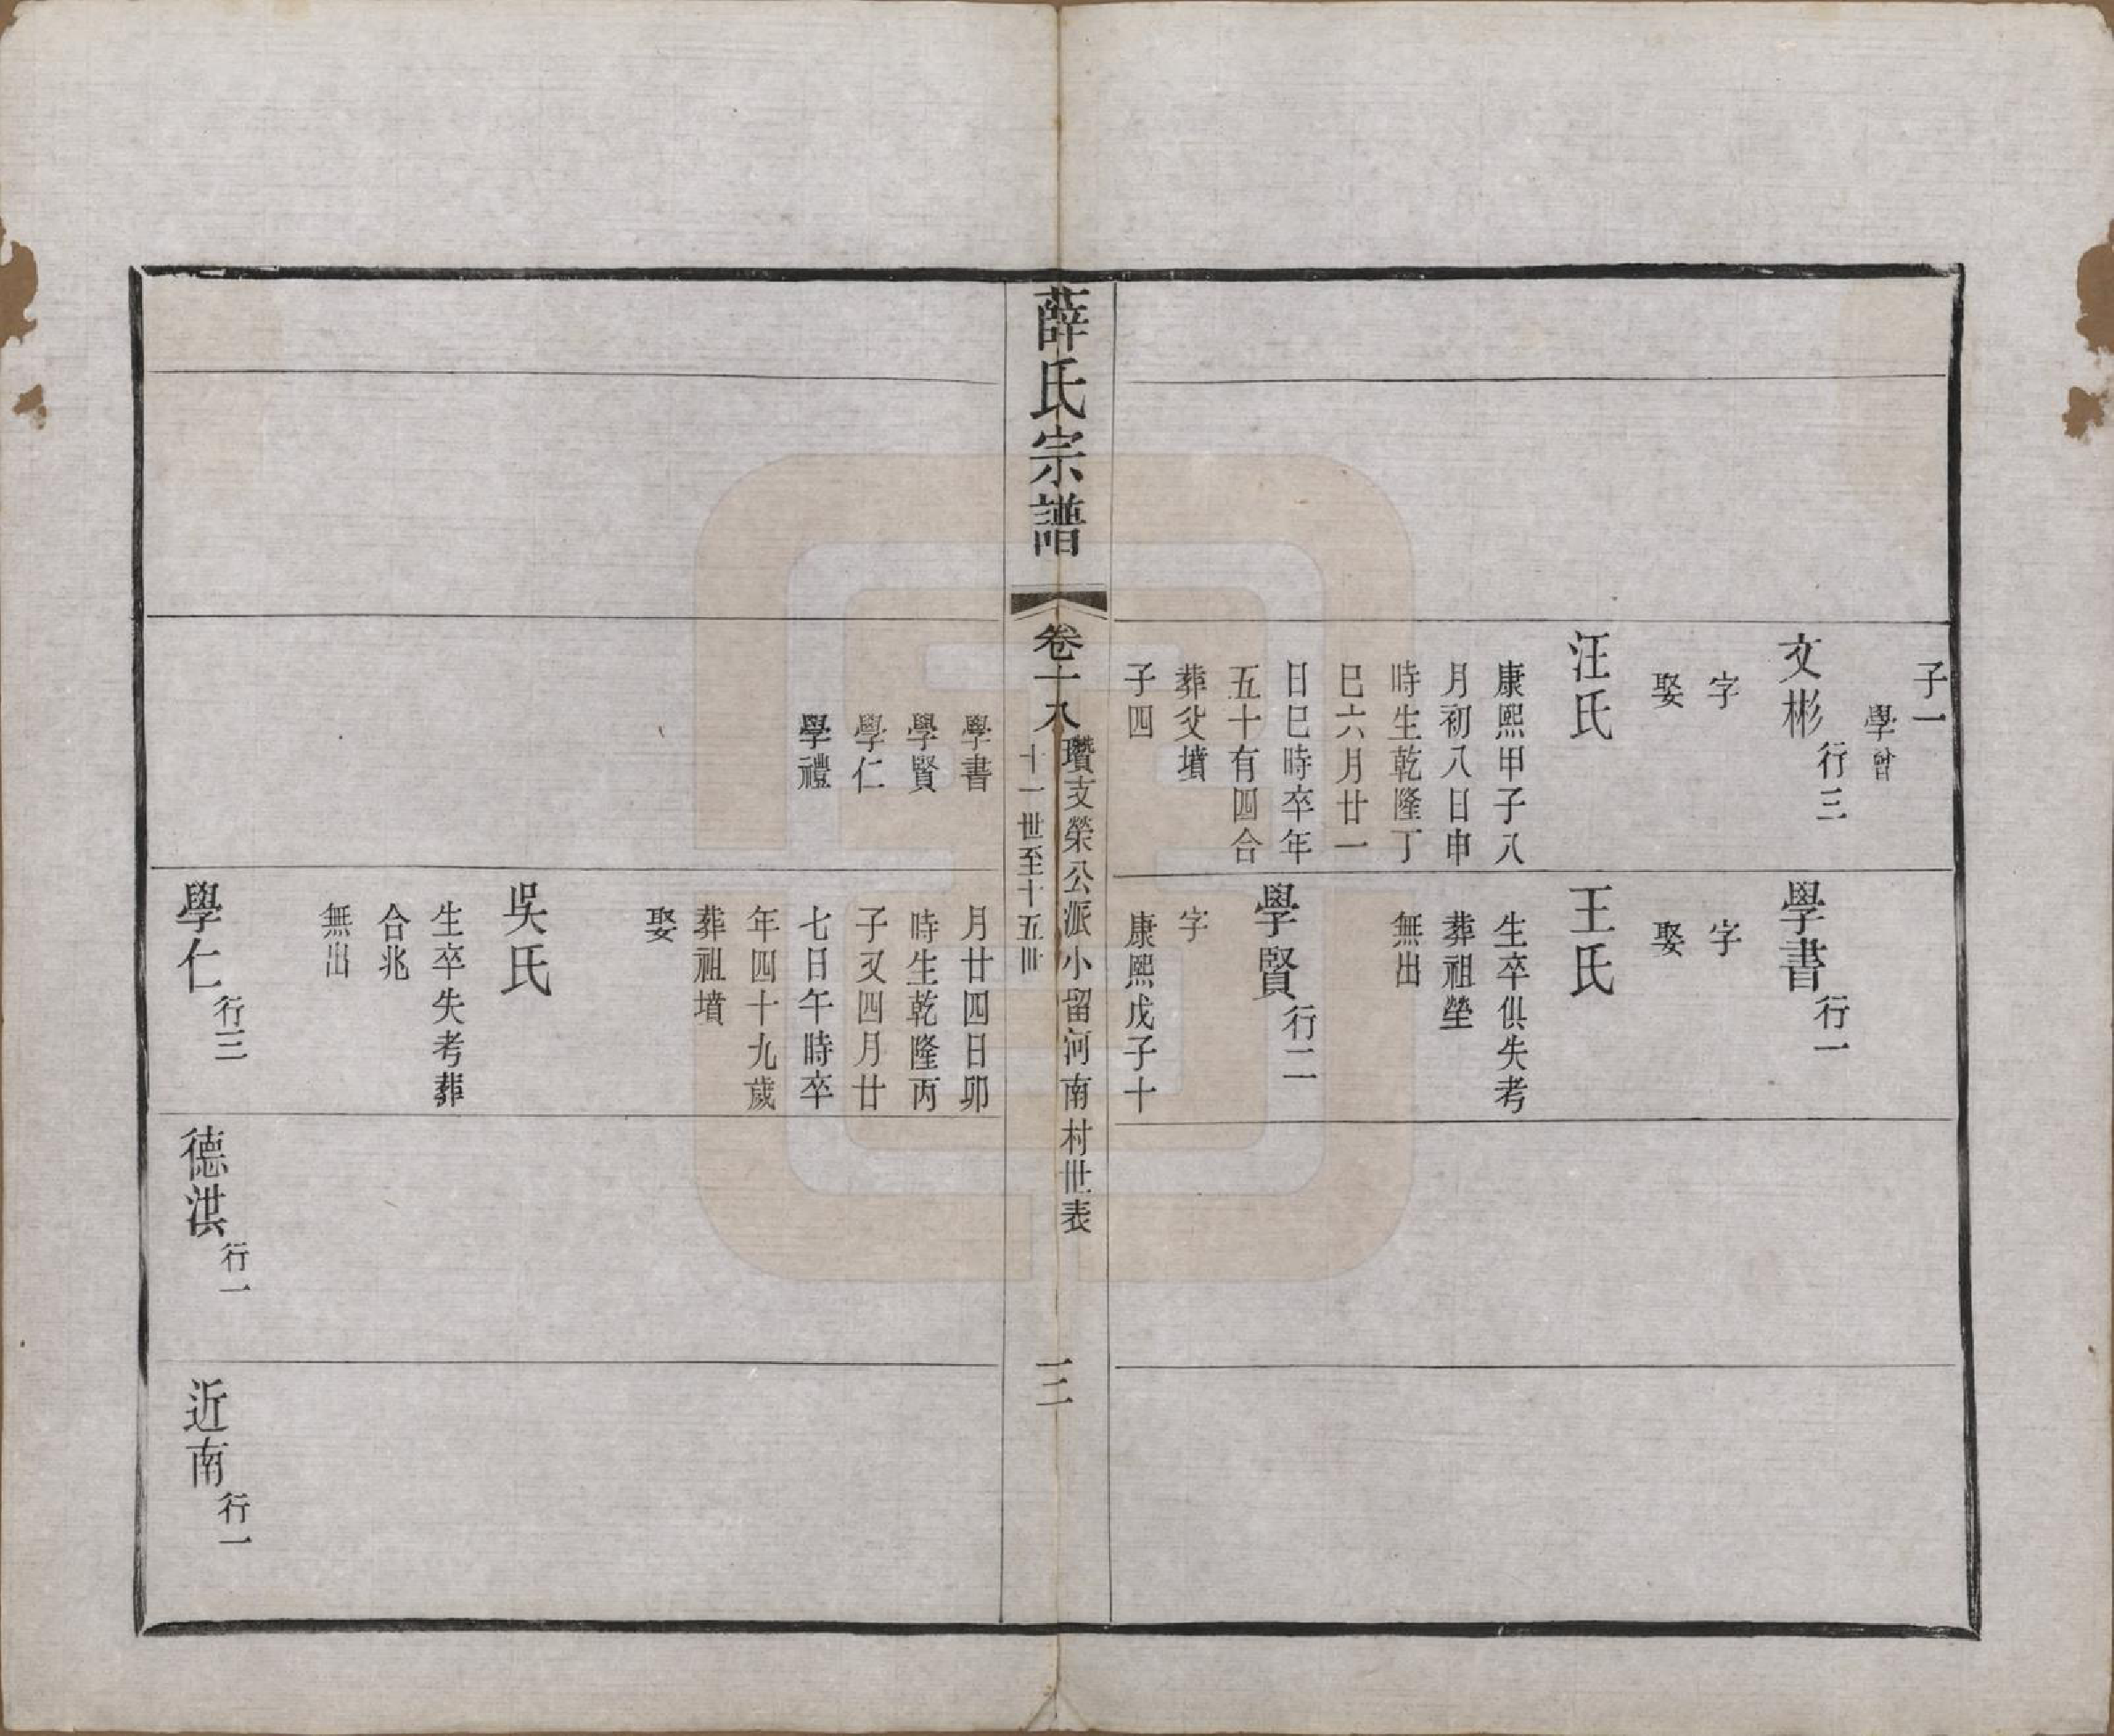 子一
學曾
文彬行三
字
娶
汪氏
康熙甲子八
月初八日申
時生乾隆丁
巳六月廿一
日巳時卒年
五十有四合
葬父墳
子四
學書行一
字
娶
王氏
生卒俱失考
葬祖塋
無出
學賢行二
字
康熙戊子十
薛氏宗譜
卷十八
瓚支榮公派小留河南村世表
十一世至十五世
三
學書
學賢
學仁
學禮
月廿四日卯
時生乾隆丙
子又四月廿
七日午時卒
年四十九歲
葬祖墳
娶
吳氏
生卒失考葬
合兆
無出
學仁行三
德淇行一
近南行一